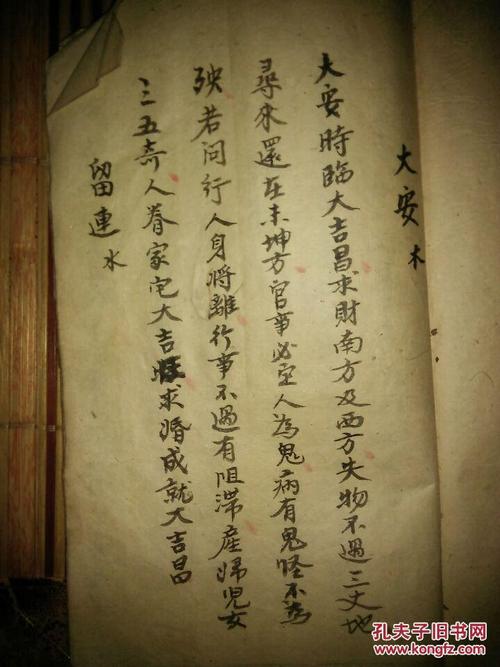 大安木
大安時臨大吉昌求財南方及西方失物不過三丈地
尋來還在未坤方官事必定人為鬼病有鬼怪不為
殃若问行人身將離行事不過有阻滞產婦兒女
三五奇人眷家宅大吉求婚成就大吉昌
留連水
孔夫子旧书网
www.kongfz.com